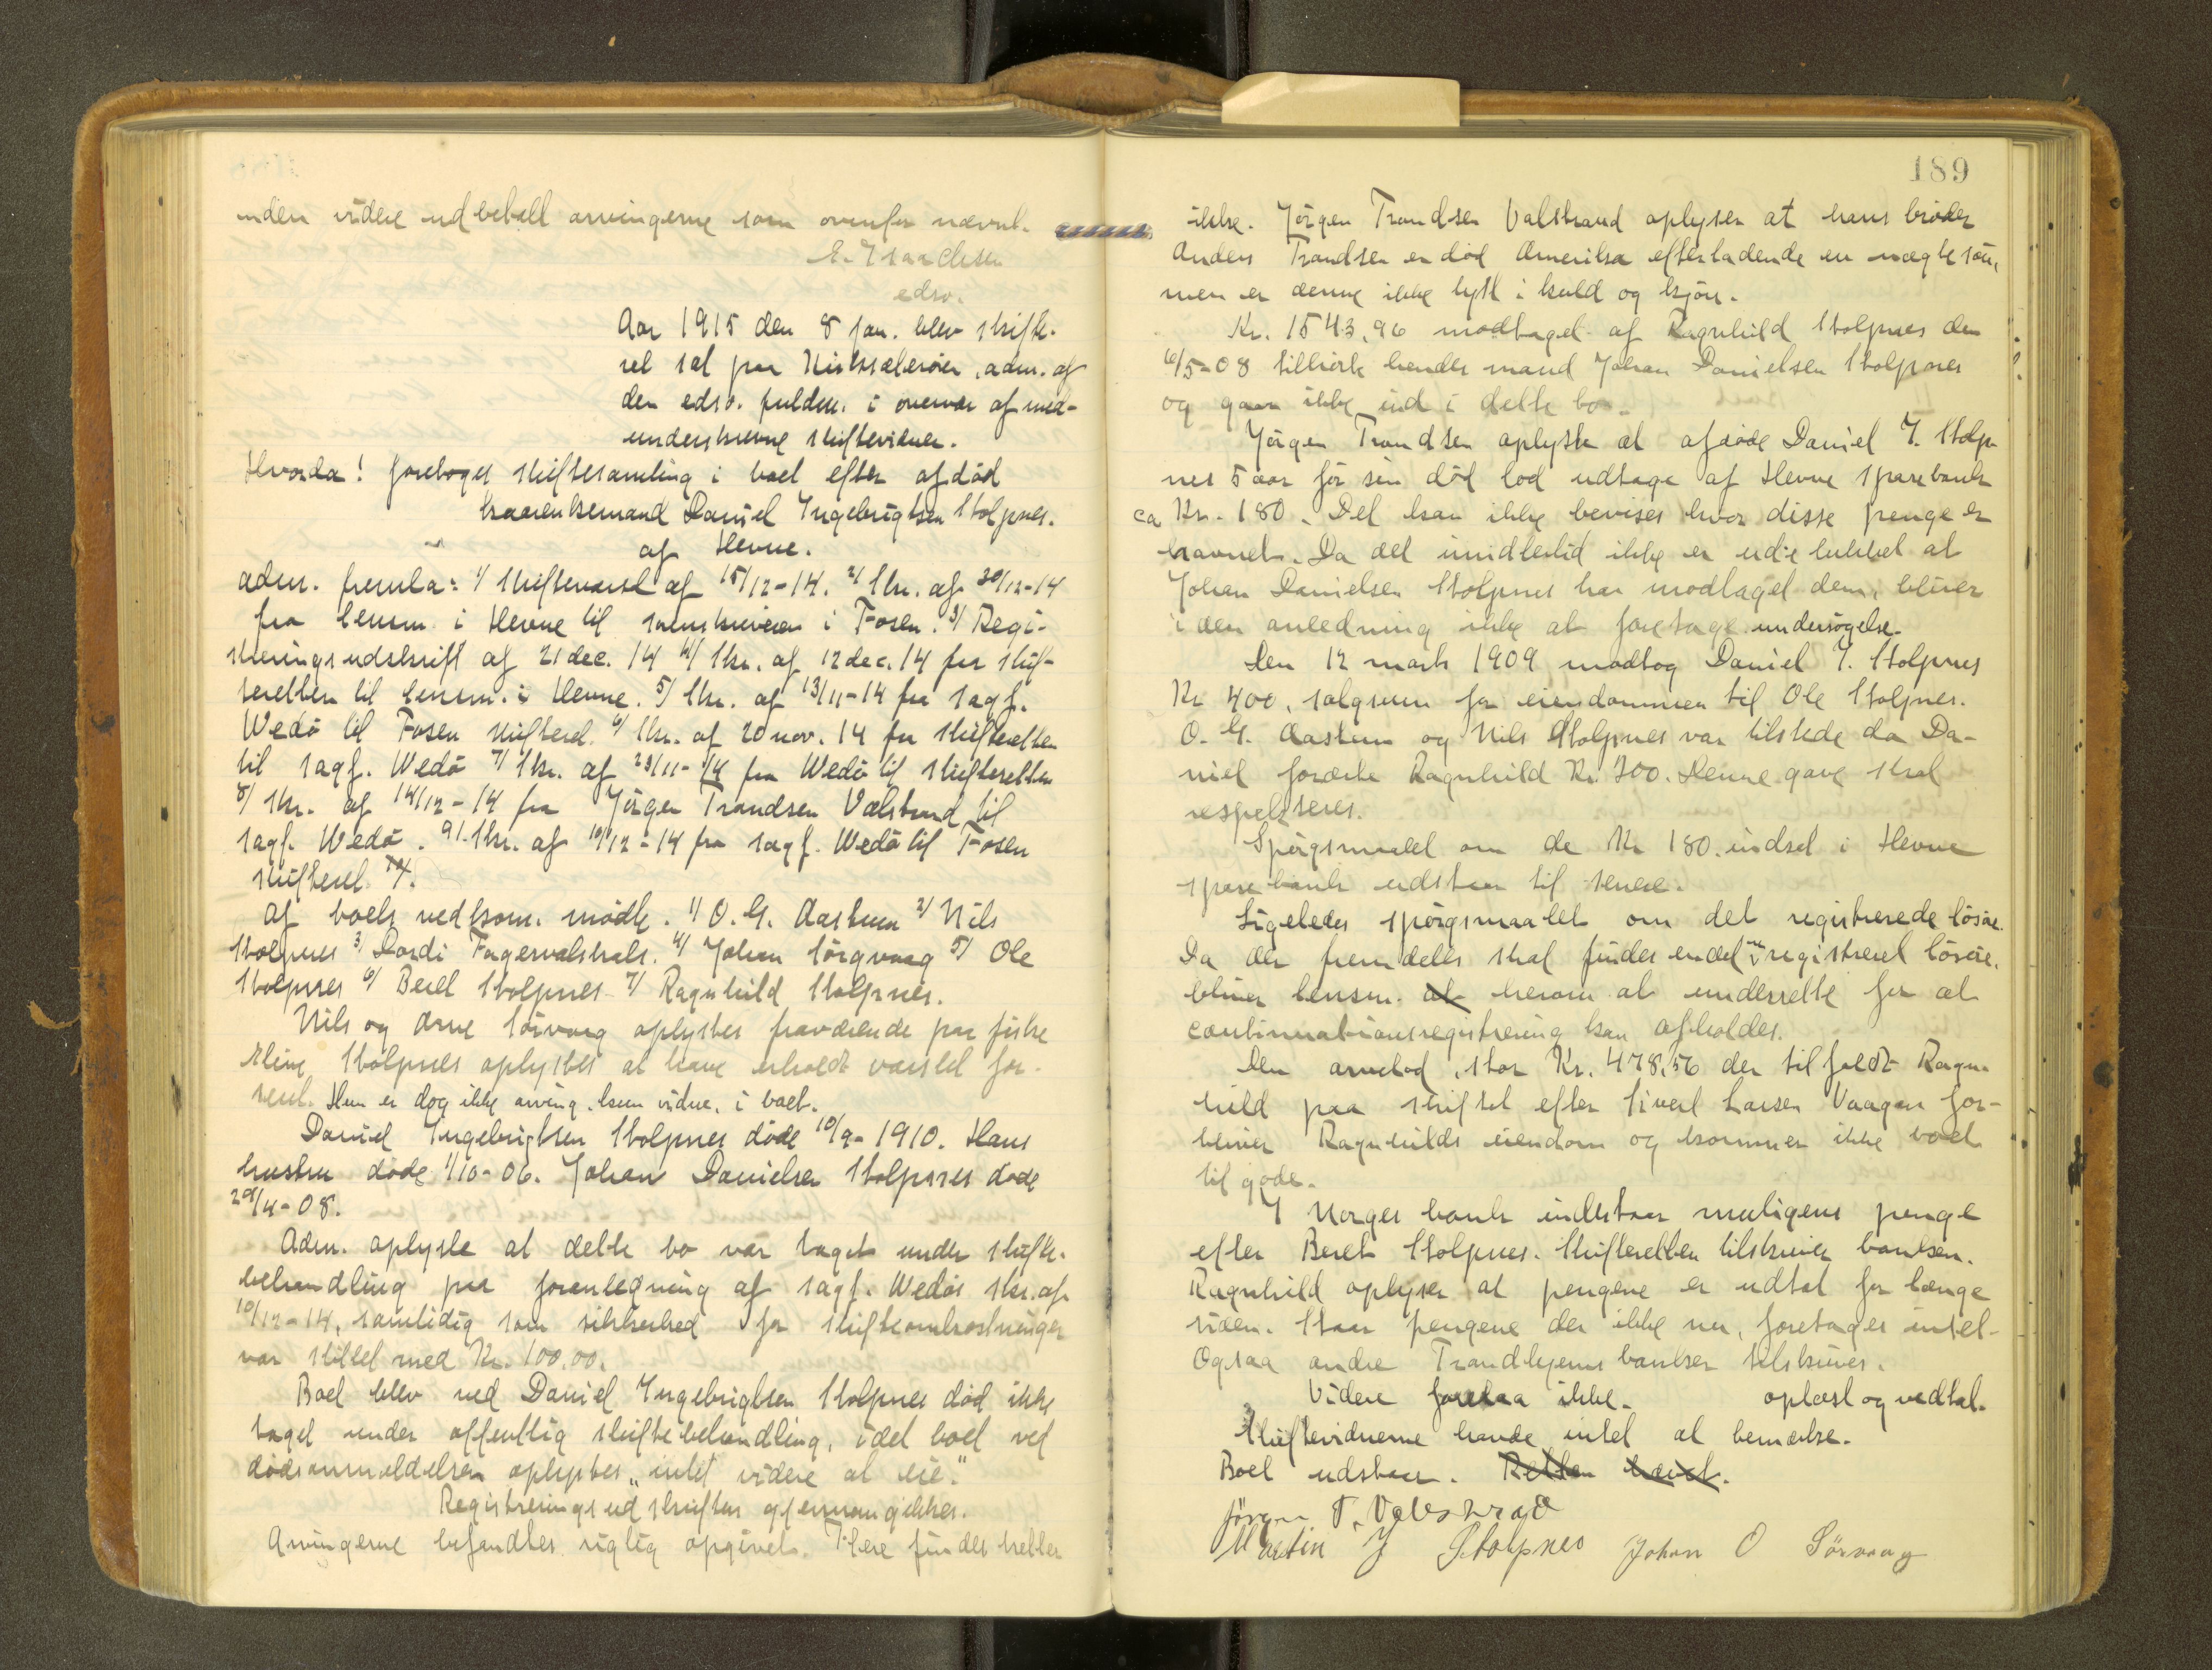 uden videre udbetalt arvingerne som ovenfor nævnt.
E. Isaachsen
edsv.
Aar 1915 den 8 jan. blev skifte-
ret sat paa Kirksæterøien, adm. af
den edsv. fuldm. i overvær af med-
underskrevne skiftevidner.
Hvorda! foretoges skiftesamling i boet efter afdød
kaarenkemand Daniel Ingebrigtsen Stolpnes.
af Hevne.
adm. fremla: 1/ Skiftevarsel af 15/12-14. 2/ Skr. af 30/12-14
fra lensm. i Hevne til sorenskriveren i Fosen. 3/ Regi-
streringsudskrift af 21 dec. 14 4/ Skr. af 12 dec. 14 fra skif-
teretten til lensm. i Hevne. 5/ Skr. af 13/11-14 fra sagf.
Wedø til Fosen skifteret. 6/ Skr. af 20 nov. 14 fra skifteretten
til sagf. Wedø 7/ Skr. af 23/11-14 fra Wedø til skifteretten
8/ Skr. af 14/12-14 fra Jørgen Trondsen Valstrand til
sagf. Wedø. 9/ Skr. af 10/12-14 fra sagf. Wedø til Fosen
skifteret
Af boets vedkom. mødte. 1/ O. G. Aastum 2/ Nils
Stolpnes 3/ Dordi Fagervalstrals. 4/ Johan Sørgvaag 5/ Ole
Stolpnes 6/ Beret Stolpnes 7/ Ragnhild Stolpnes.
Nils og Arne Sørvaag oplystes fraværende paa fiske
Eline Stolpnes oplystes at have erholdt varslet for-
sent. Hun er dog ikke arving. kun vidne. i boet.
Daniel Ingebrigtsen Stolpnes døde 10/9-1910. Hans
hustru døde 1/10-06. Johan Danielsen Stolpnes døde
28/4-08.
Adm. oplyste at dette bo var taget under skifte-
behandling paa foranledning af sagf. Wedøs skr. af
10/12-14, samtidig som sikkerhed for skifteomkostninger
var stillet med Kr. 100,00.
Boet blev ved Daniel Ingebrigtsen Stolpnes død ikke
taget under offentlig skiftebehandling, idet boet ved
dødsanmeldelsen oplystes „intet videre at eie."
Registreringsudskriften gjennemgikkes.
Arvingerne befandtes rigtig opgivet. Flere findes heller
189
ikke. Jørgen Trondsen Valstrand oplyser at hans broder
Anders Trondsen er død Amerika efterladende en uægte søn,
men er denne ikke lyst i kuld og kjøn.
Kr. 1543,96 modtaget af Ragnhild Stolpnes den
6/5-08 tilhørte hendes mand Johan Danielsen Stolpnes
og gaar ikke ind i dette bo.
Jørgen Trondsen oplyste at afdøde Daniel I. Stolp-
nes 5 aar før sin død lod udtage af Hevne sparebank
ca Kr. 180. Det kan ikke bevises hvor disse penge er
havnet. Da det imidlertid ikke er udelukket at
Johan Danielsen Stolpnes har modtaget dem, bliver
i den anledning ikke at foretage undersøgelse.
Den 12 marts 1909 modtog Daniel I. Stolpnes
Kr 400, salgssum for eiendommen til Ole Stolpnes.
O. G. Aastum og Nils Stolpnes var tilstede da Da-
niel forærte Ragnhild Kr. 200. Denne gave skal
respekteres.
Spørgsmaalet om de Kr 180. indsat i Hevne
sparebank udstaar til senere.
Ligeledes spørgsmaalet om det registrerede løsøre.
Da der fremdeles skal findes endel uregistreret løsøre.
bliver lensm. at herom at underrette for at
continuationsregistrering kan afholdes.
Den arvelod, stor Kr. 478,56 der tilfaldt Ragn-
hild paa skiftet efter Sivert Larsen Vaagan for-
bliver Ragnhilds eiendom og kommer ikke boet
til gode.
I Norges bank indestaar muligens penge
efter Beret Stolpnes. Skifteretten tilskriver banken.
Ragnhild oplyser at pengene er udtat for længe
siden. Staar pengene der ikke nu, foretages intet.
Ogsaa andre Trondhjems banker tilskrives.
Videre forelaa ikke. oplæst og vedtat.
Skiftevidnerne havde intet at bemærke.
Boet udstaar. Retten hævet.
Jørgen T. Valstrad
Martin J Stolpnes Johan O Sørvaag